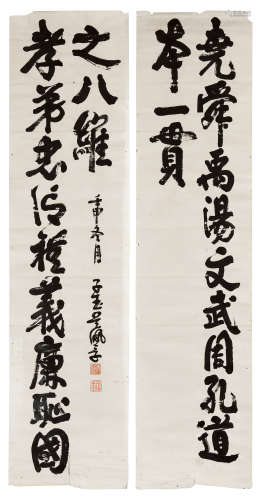 堯舜禹湯文武周孔道
本一貫
孝弟忠信禮義廉恥國
之八維
壬申冬月 子玉吳佩孚